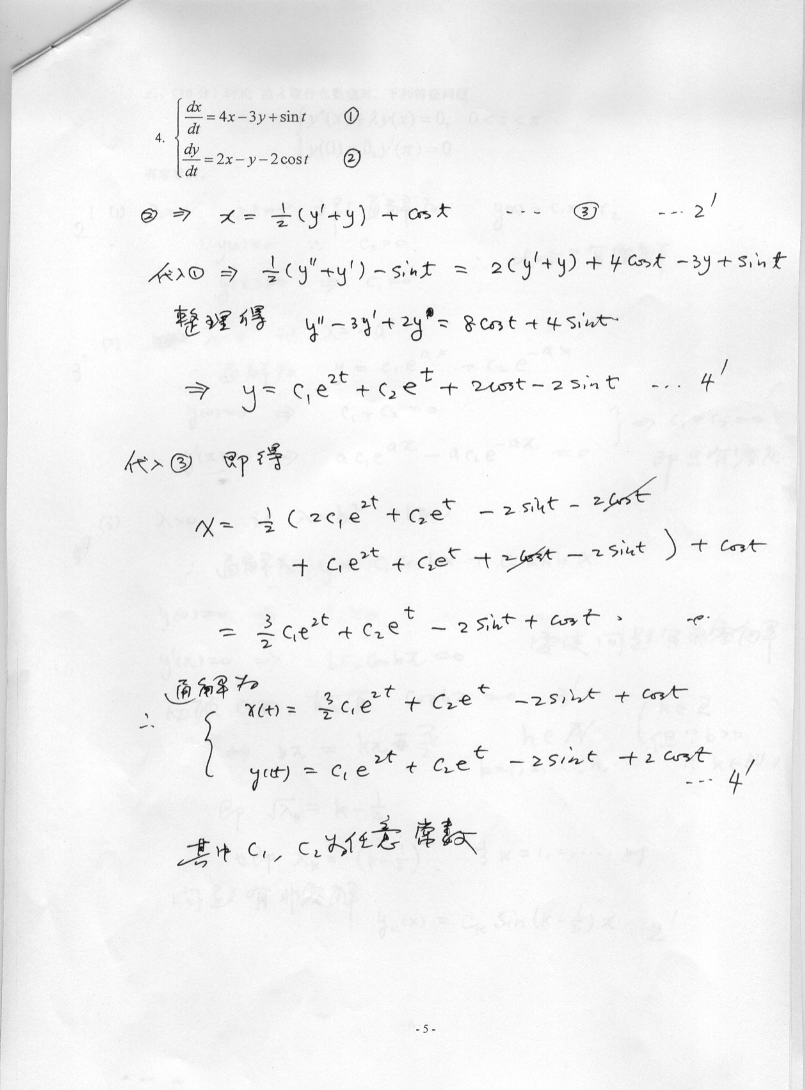 4. { dx/dt = 4x − 3y + sin t ①
dy/dt = 2x − y − 2cos t ②
② ⇒ x = 1/2 (y' + y) + cos t --- ③ --- 2'
代入① ⇒ 1/2 (y'' + y') − sin t = 2(y' + y) + 4 cos t − 3y + sin t
整理得 y'' − 3y' + 2y = 8 cos t + 4 sin t.
⇒ y = C₁e^{2t} + C₂e^{t} + 2cos t − 2 sin t --- 4'
代入③ 即得
x = 1/2 ( 2C₁e^{2t} + C₂e^{t} − 2 sin t − 2cos t
+ C₁e^{2t} + C₂e^{t} + 2cos t − 2 sin t ) + cos t
= 3/2 C₁e^{2t} + C₂e^{t} − 2 sin t + cos t .
通解为
∴ { x(t) = 3/2 C₁e^{2t} + C₂e^{t} − 2sin t + cos t
y(t) = C₁e^{2t} + C₂e^{t} − 2sin t + 2cos t
--- 4'
其中 C₁, C₂ 为任意常数
- 5 -